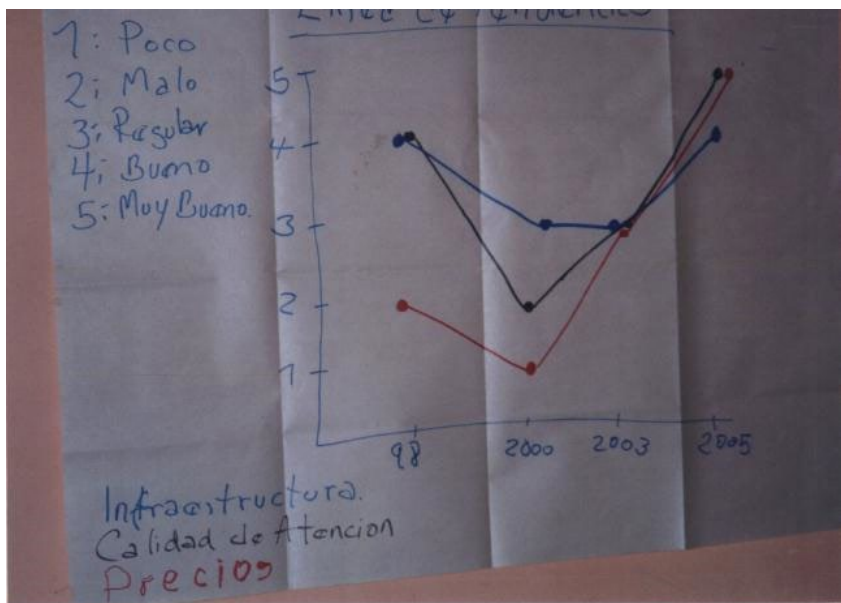 1: Poco
2; Malo
3; Regular
4; Bueno
5: Muy Bueno.
5
4
3
2
1
98 2000 2003 2005
Infraestructura.
Calidad de Atencion
Precios